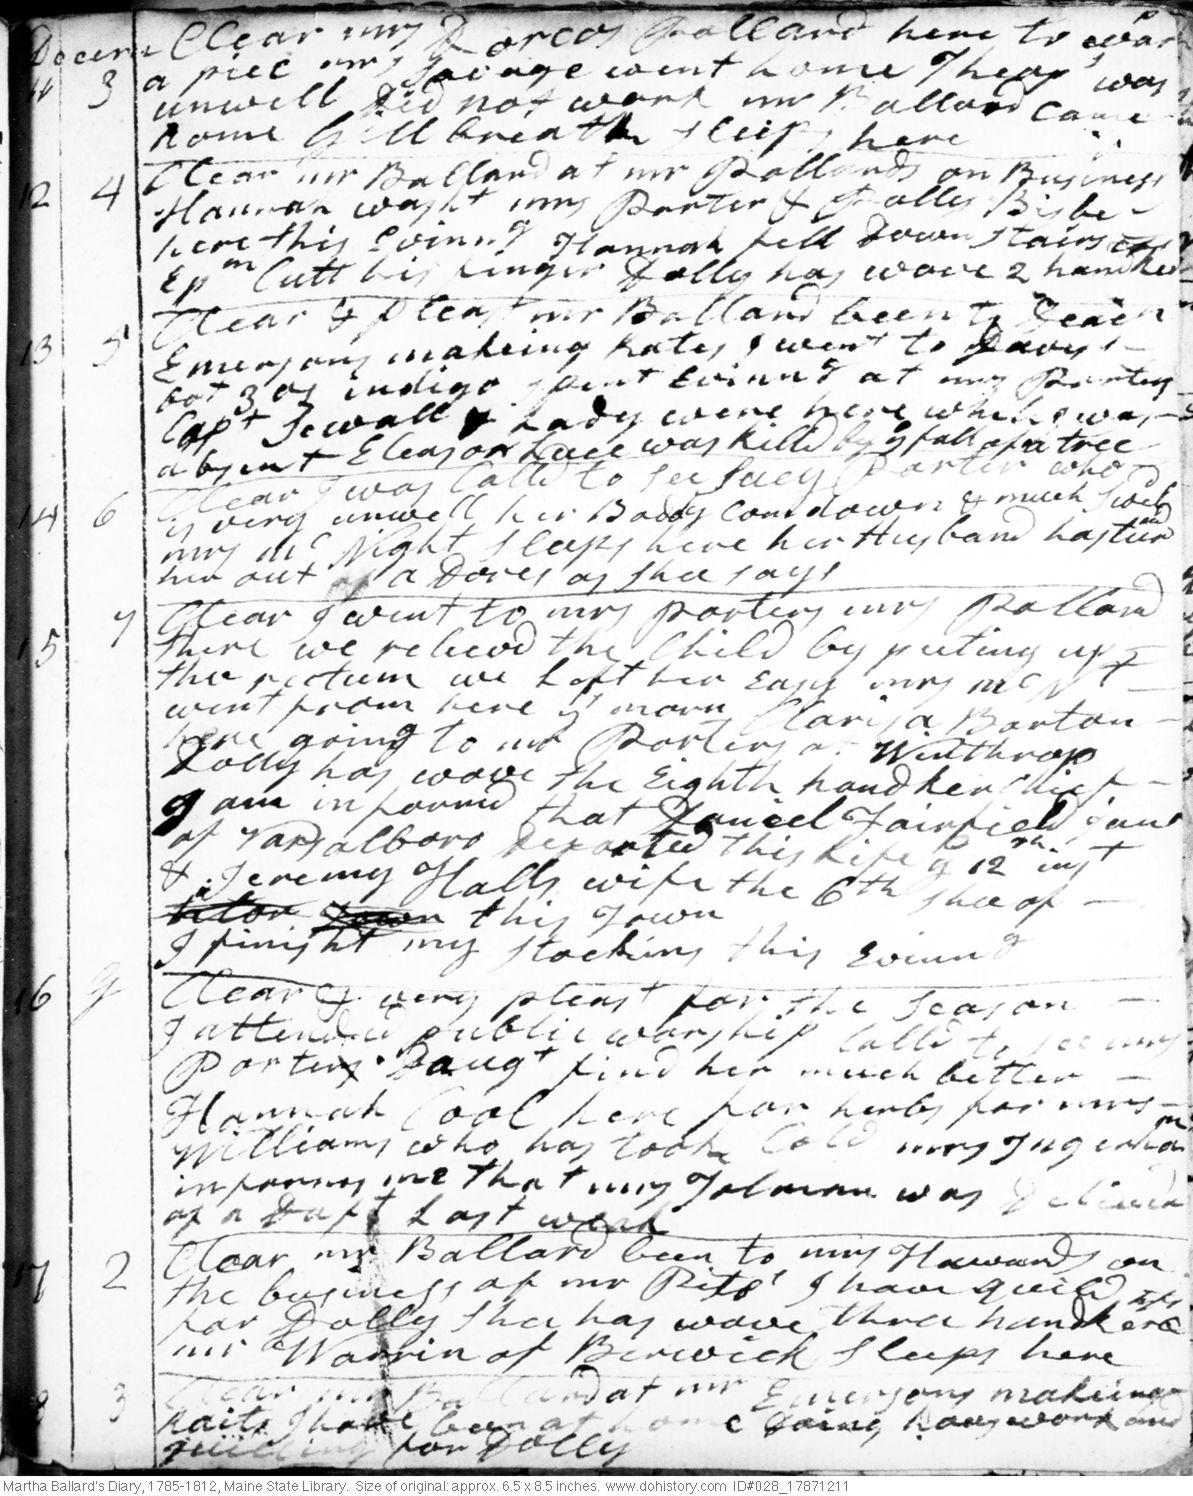 Decem Clear mrs Dorcas Pollard here to warp
11 3 a piec mrs Savage went home Theops was
unwell Did not work mr Ballard Came
home Gillbreath sleeps here
12 4 Clear mr Ballard at mr Pollards on Business
Hannah washt mrs Porter & Polly Bisbe
here this Evinng Hannah fell Down Stairs
Epm Cutt his finger Dolly has wove 2 handkf
13 5 Clear & pleast mr Ballard been to Deacn
Emersons makeing Rates I went to Daviss
bot 3 oz indigo spent Evinng at mrs Porters
Capt Sewall & Lady were here while I was
absent Eleasor Lace was killd by ye fall of a tree
14 6 Clear I was Calld to see Lucy Porter who
is very unwell her Body Com down & much Sweld
mrs mc Night sleeps here her Husband has turnd
her out of a Dores as shee says
15 7 Clear I went to mrs Porters mrs Pollard
there we relievd the Child by puting up
the rectum we Left her Easy mrs mc Nt
went from here ys morn Clarisa Barton
here going to mr Porters at Winthrop
Dolly has wove the Eighth handkerchief
I am informd that Daniel Fairfield Junr
of Varsalboro Departed this Life ye 12th inst
& Jeremy Halls wife the 6th shee of
this Town
I finisht my stockins this Evinng
16 g Clear & very pleast for the Season
I attended public worship Calld to see mrs
Porters Daugt find her much better
Hannah Cool here for herbs for mrs
Williams who has took Cold mrs Ingerham
informs me that mrs Tolman was Deliverd
of a Daft Last week
17 2 Clear mr Ballard been to mrs Howards on
the business of mr Pitts I have quild
for Dolly Shee has wove three handkerchfs
mr Warrin of Berwick sleeps here
18 3 Clear mr Ballard at mr Emersons makeing
Raits I have been at home Doing houswork and
quilling for Dolly
Martha Ballard's Diary, 1785-1812, Maine State Library. Size of original: approx. 6.5 x 8.5 inches. www.dohistory.com ID#028_17871211